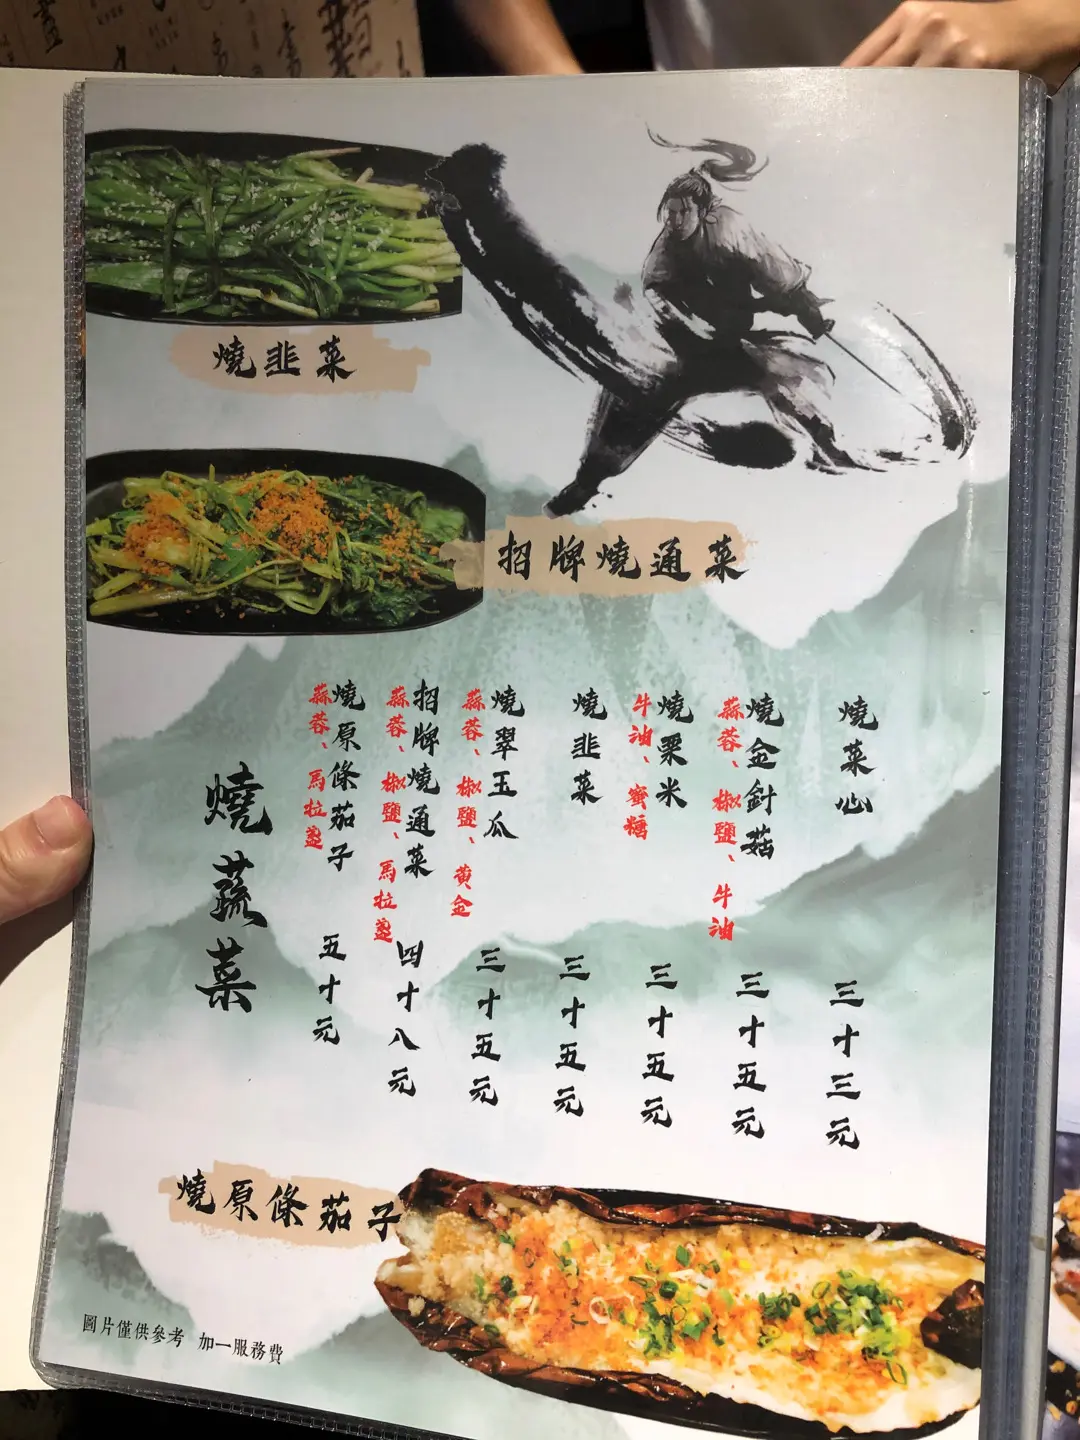 燒韭菜
招牌燒通菜
燒菜心
三十三元
燒金針菇
蒜蓉、椒鹽、牛油
三十五元
燒粟米
牛油、蜜糖
三十五元
燒韭菜
三十五元
燒翠玉瓜
蒜蓉、椒鹽、黃金
三十五元
招牌燒通菜
蒜蓉、椒鹽、馬拉盞
四十八元
燒原條茄子
蒜蓉、馬拉盞
五十元
燒蔬菜
燒原條茄子
圖片僅供參考 加一服務費